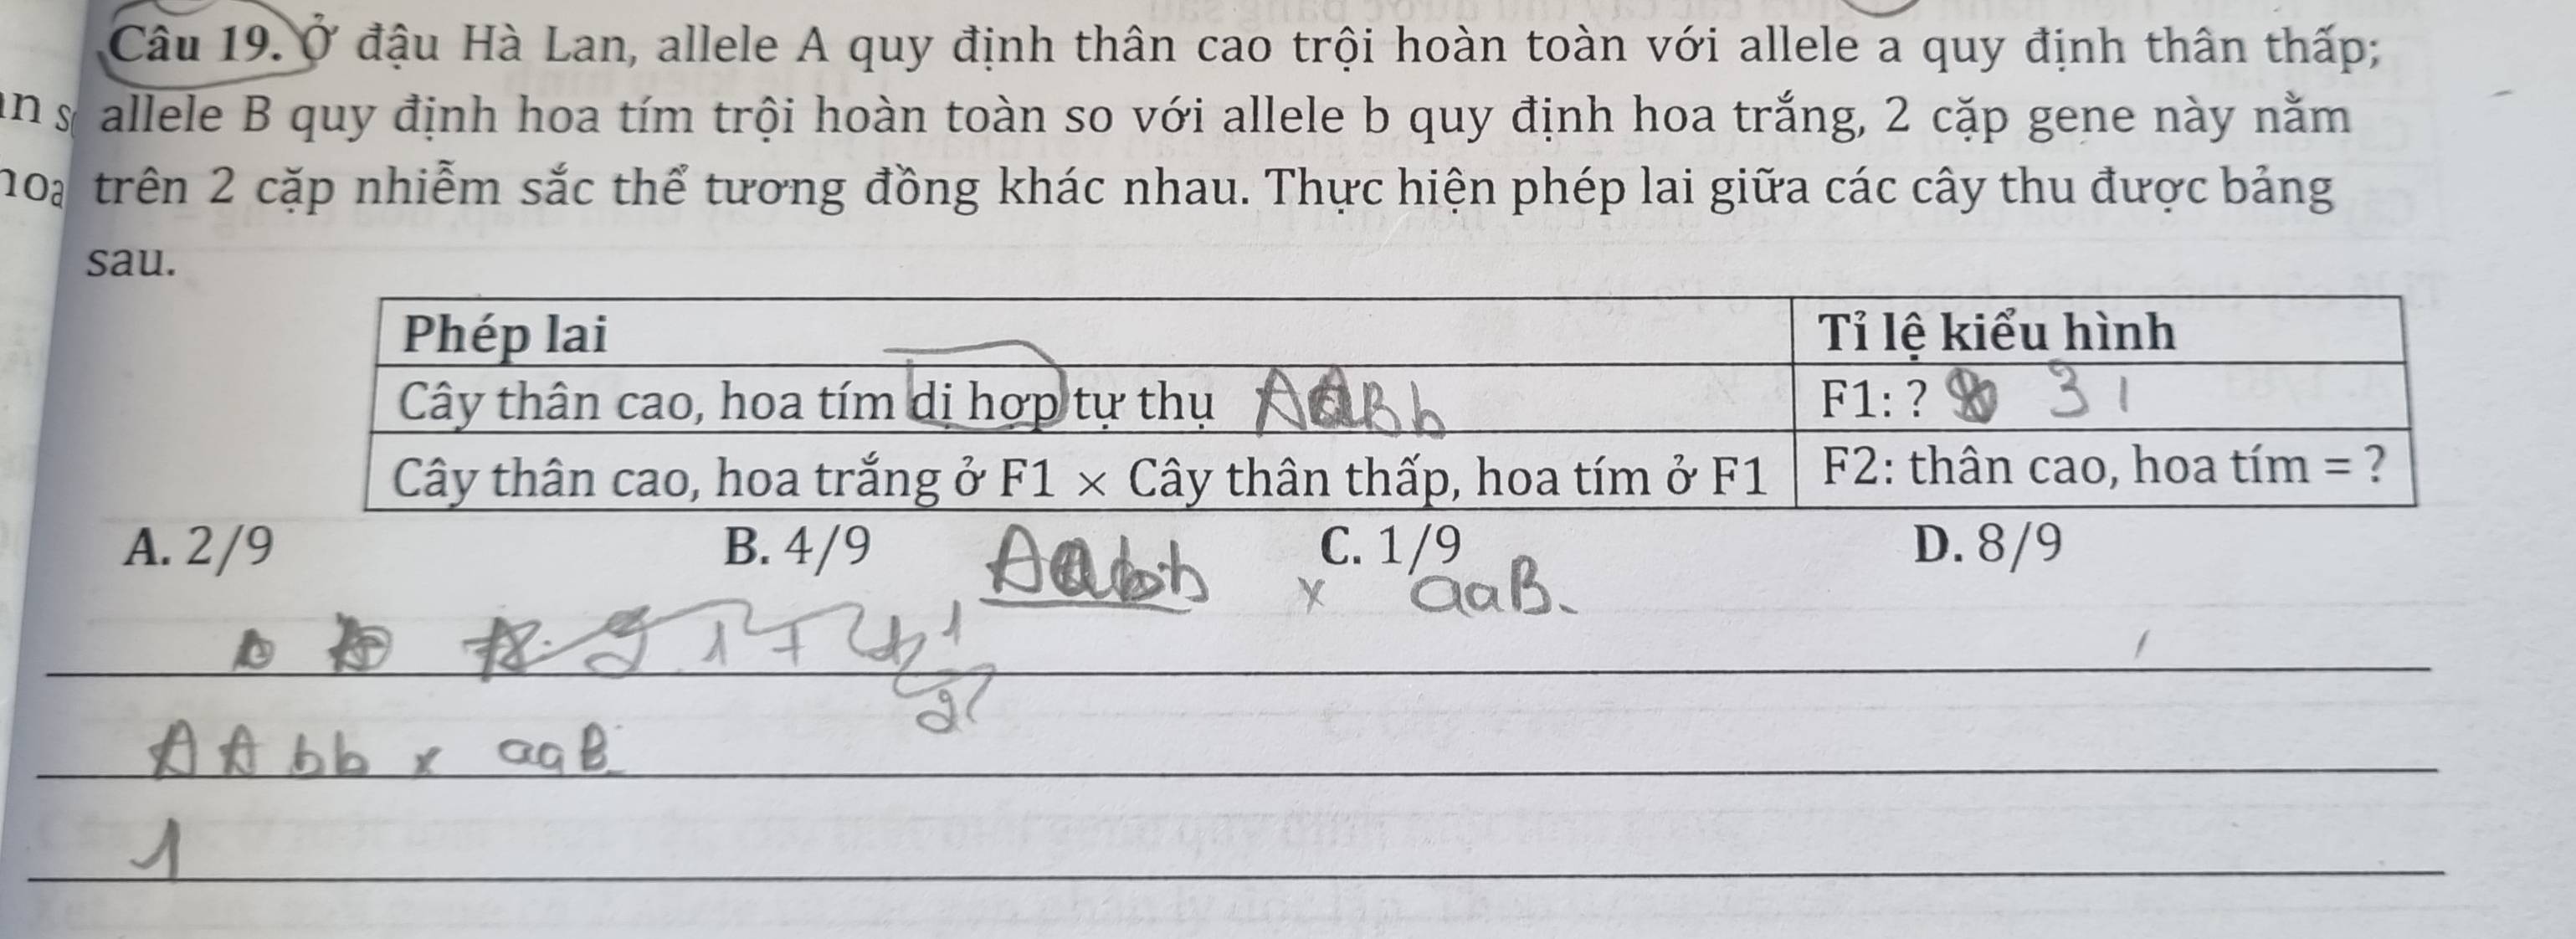 Câu 19. Ở đậu Hà Lan, allele A quy định thân cao trội hoàn toàn với allele a quy định thân thấp;
allele B quy định hoa tím trội hoàn toàn so với allele b quy định hoa trắng, 2 cặp gene này nằm
trên 2 cặp nhiễm sắc thể tương đồng khác nhau. Thực hiện phép lai giữa các cây thu được bảng
sau.
Phép lai Tỉ lệ kiểu hình
Cây thân cao, hoa tím dị hợp tự thụ AaBb F1: ? 3 1
Cây thân cao, hoa trắng ở F1 × Cây thân thấp, hoa tím ở F1 F2: thân cao, hoa tím = ?
A. 2/9 B. 4/9 C. 1/9 D. 8/9
Aabb x aaB-
AAbb x aaB-
1